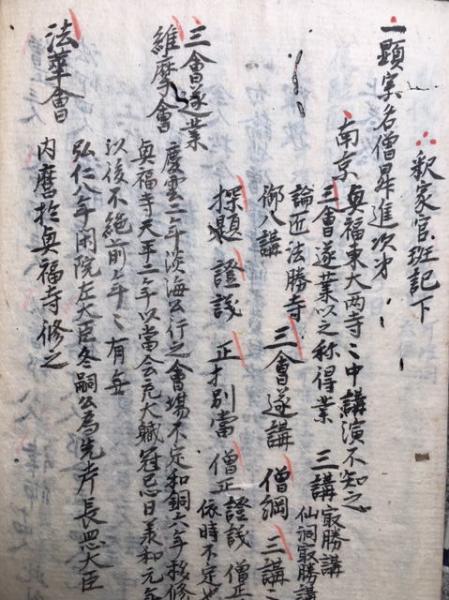 釈家官班記下
一顕宗名僧昇進次第
南京 興福東大両寺〻中講演不知之
三會遂業以之称得業 三講 最勝講 仙洞最勝講
論匠法勝寺 三會遂講 僧綱 三講
御八講
探題 證議 正才別當 僧正 證議 僧正 依時不定也
三會遂業
維摩會 慶雲二年淡海公行之會場不定和銅六年移修
興福寺天平二年以當会充大職冠忌日承和元年
以後不絶前〻年〻有無
法華會 弘仁八年閑院左大臣冬嗣公為先考長罡大臣
内麿於興福寺修之